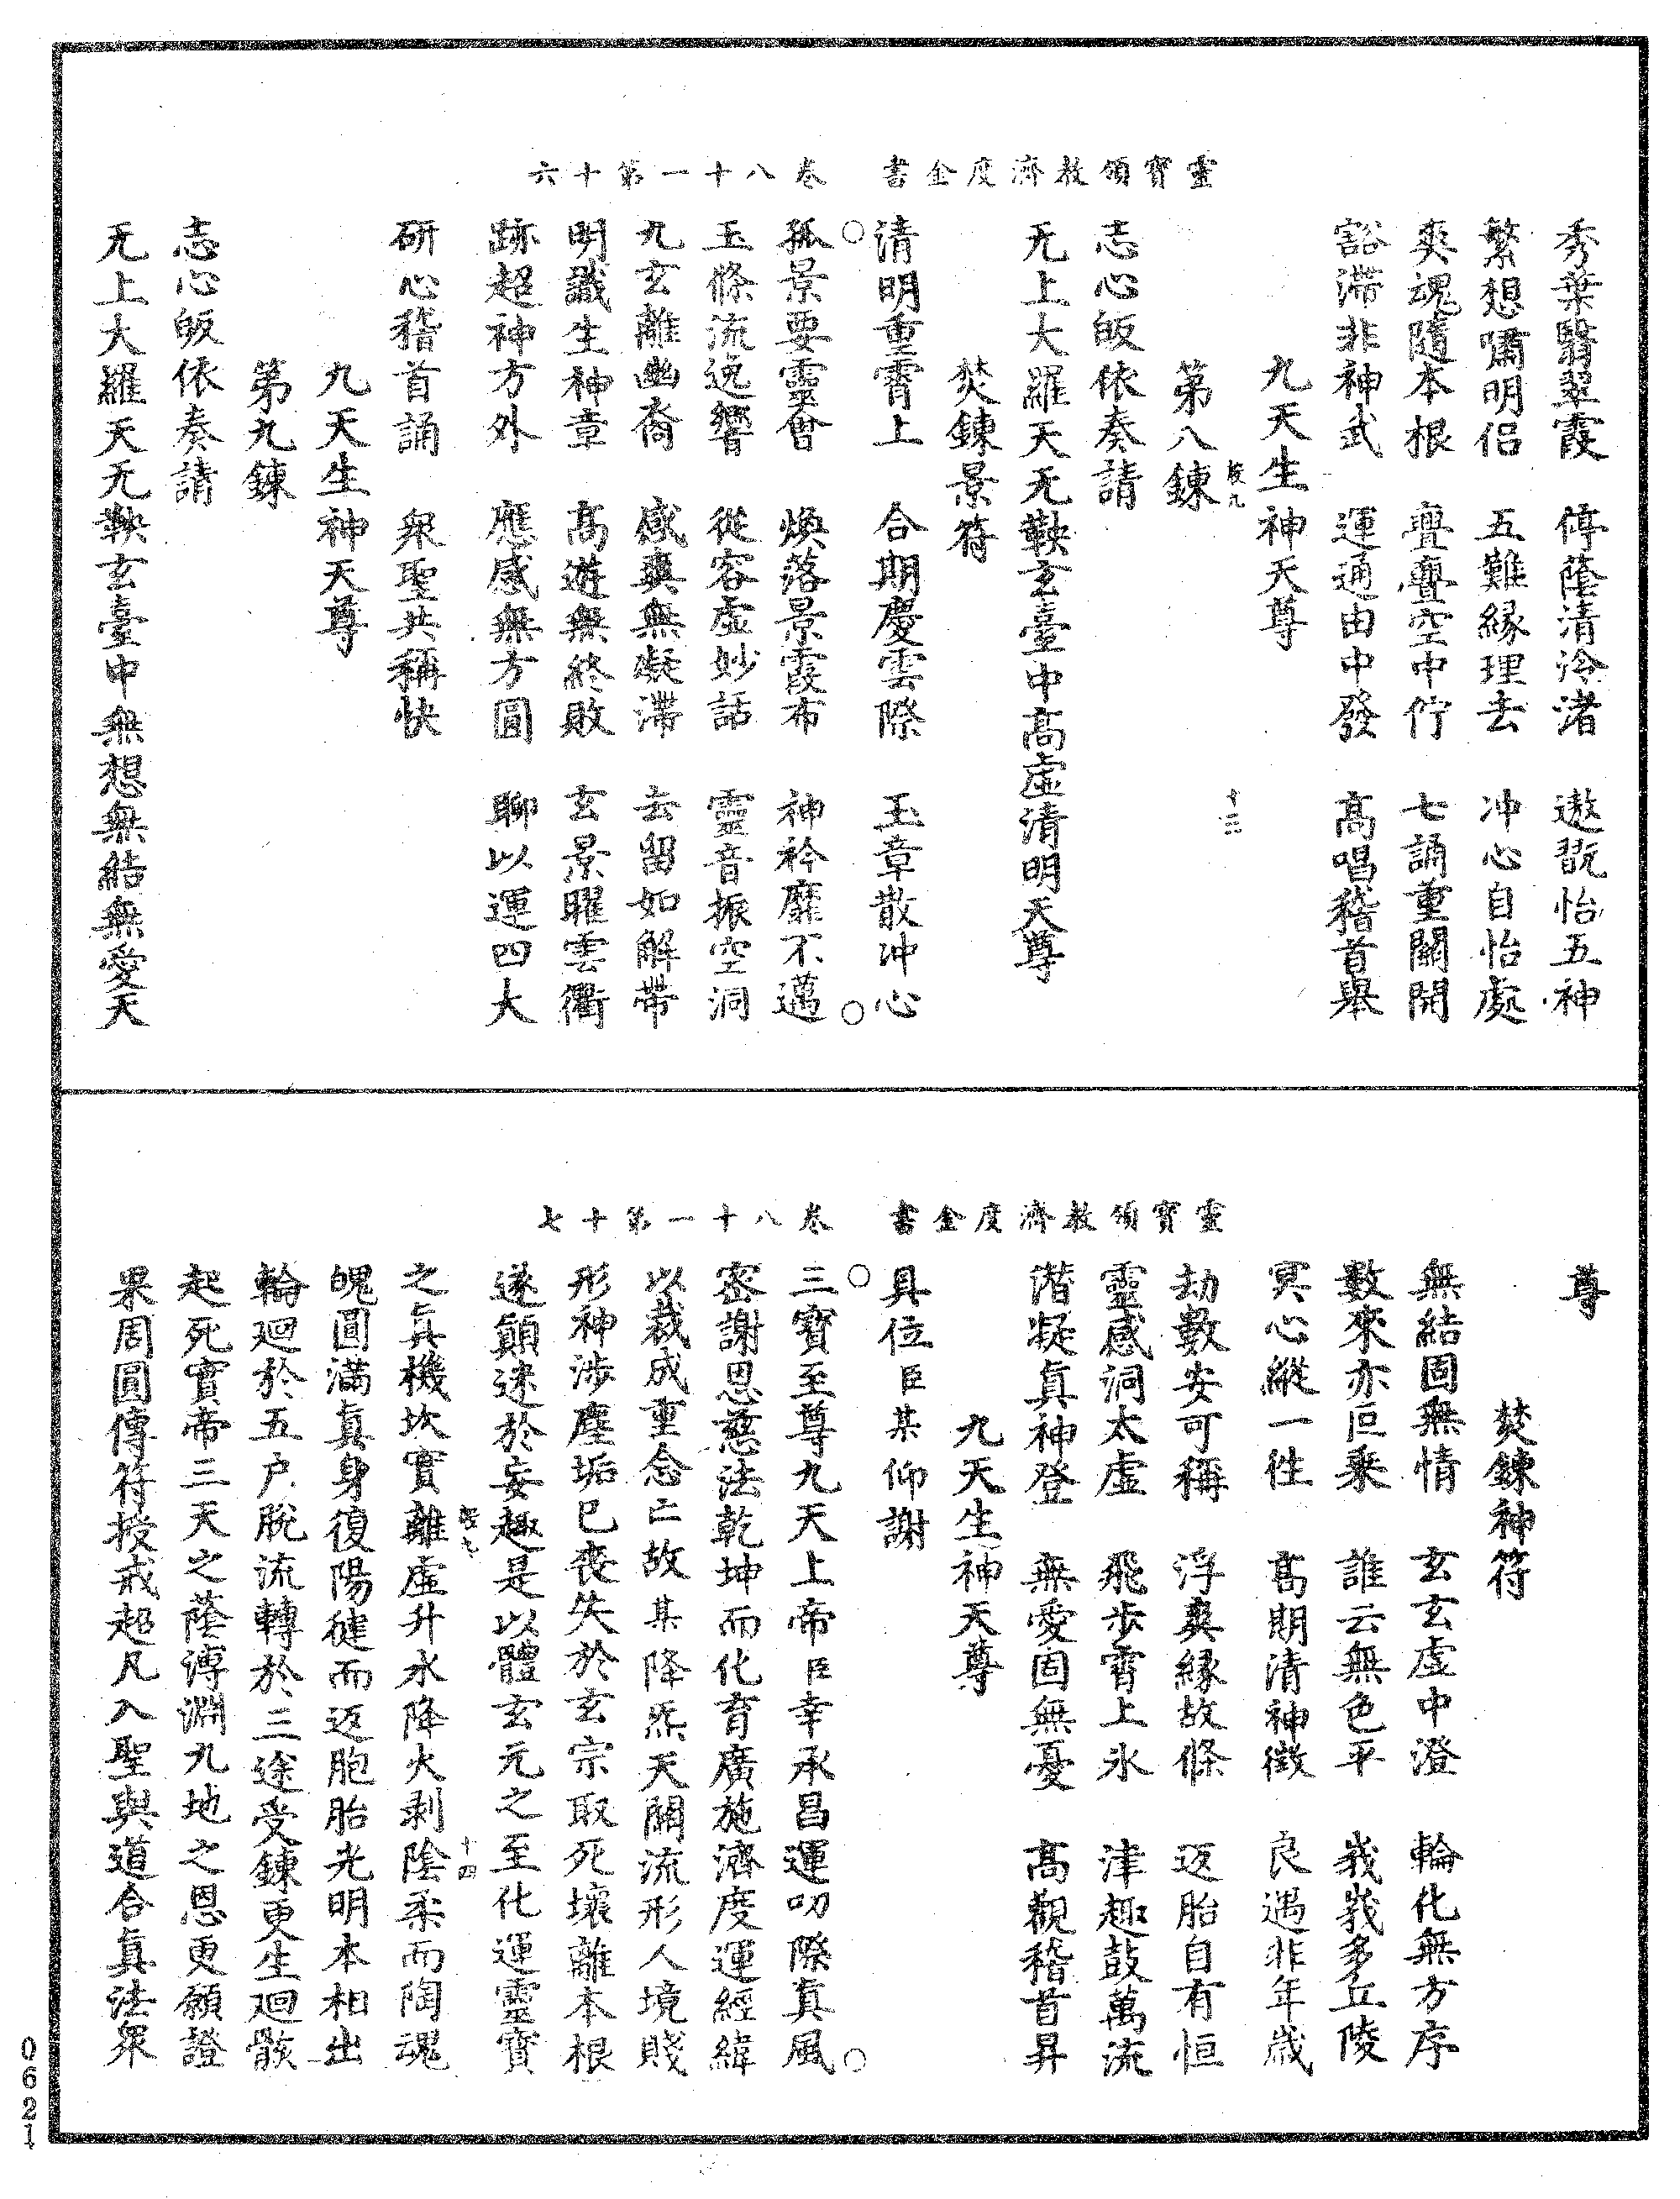 靈寶領教濟度金書 卷八十一第十六
秀葉翳翠霞 停蔭清泠渚 遨翫怡五神
繁想嘯明侶 五難緣理去 冲心自怡處
爽魂隨本根 亹亹空中佇 七誦重關開
豁滯非神武 運通由中發 高唱稽首舉
九天生神天尊
十三
第八鍊
志心皈依奏請
无上大羅天无鞅玄臺中高虛清明天尊
焚鍊景符
清明重霄上 合期慶雲際 玉章散冲心
孤景要靈會 煥落景霞布 神衿靡不邁
玉條流逸響 從容虛妙話 靈音振空洞
九玄離幽裔 感爽無凝滯 去留如解帶
明識生神章 高遊無終敗 玄景曜雲衢
跡超神方外 應感無方圓 聊以運四大
研心稽首誦 衆聖共稱快
九天生神天尊
第九鍊
志心皈依奏請
无上大羅天无鞅玄臺中無想無結無愛天
靈寶領教濟度金書 卷八十一第十七
尊
焚鍊神符
無結固無情 玄玄虛中澄 輪化無方序
數來亦叵乘 誰云無色平 峩峩多丘陵
冥心縱一徃 高期清神徵 良遇非年歲
劫數安可稱 浮爽緣故條 返胎自有恒
靈感洞太虛 飛步霄上氷 津趣鼓萬流
潛凝眞神登 無愛固無憂 高觀稽首昇
九天生神天尊
具位臣某仰謝
三寶至尊九天上帝臣幸承昌運叨際眞風
密謝恩慈法乾坤而化育廣施濟度運經緯
以裁成重念亡故某降炁天關流形人境賤
形神涉塵垢已喪失於玄宗取死壞離本根
遂顛迷於妄趣是以體玄元之至化運靈寶
十四
之眞機坎實離虛升水降火剥陰柔而陶魂
魄圓滿眞身復陽徤而返胞胎光明本相出
輪廻於五户脫流轉於三途受鍊更生廻骸
起死實帝三天之蔭溥淵九地之恩更願證
果周圓傳符授戒超凡入聖與道合眞法衆
0621